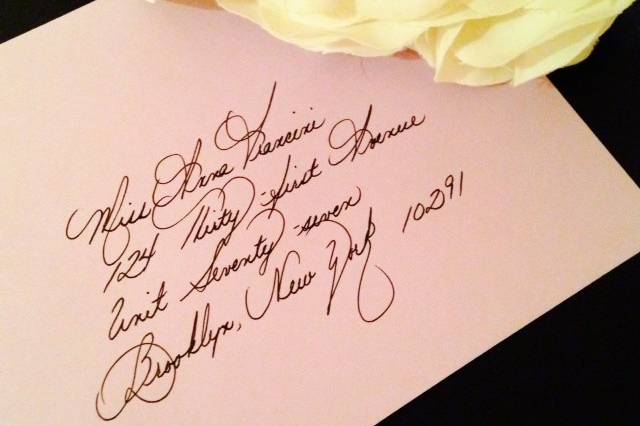 Miss Anna Viancini
124 Thirty-first Avenue
Unit Seventy-seven
Brooklyn, New York 10291